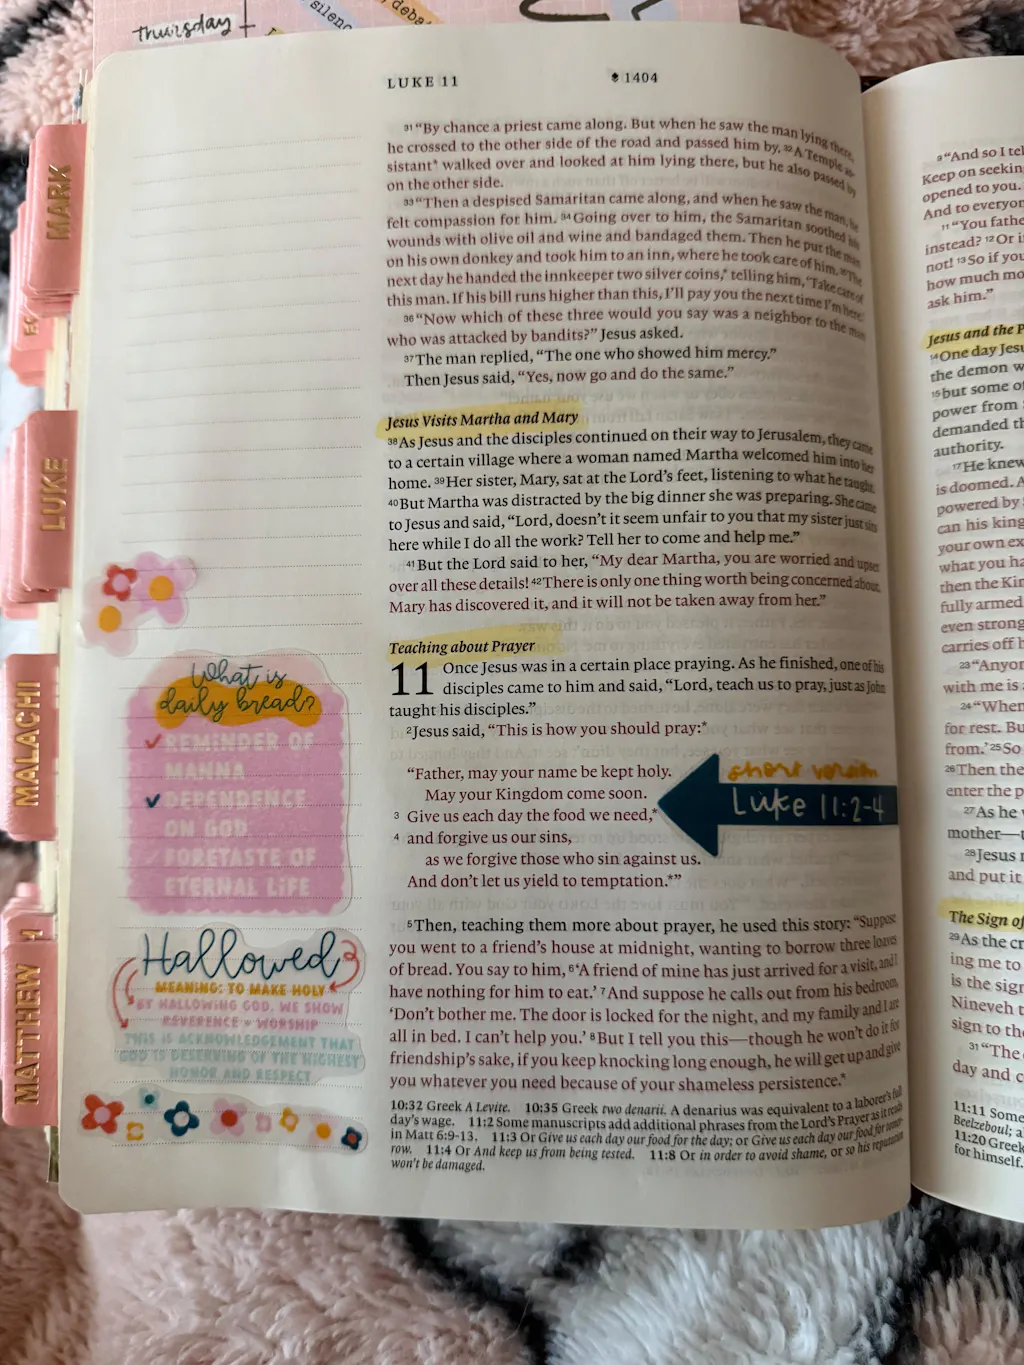 thursday
silenc
deba
MARK
LUKE
MALACHI
MATTHEW
LUKE 11
1404
31 “By chance a priest came along. But when he saw the man lying there,
he crossed to the other side of the road and passed him by. 32 A Temple as-
sistant* walked over and looked at him lying there, but he also passed by
on the other side.
33 “Then a despised Samaritan came along, and when he saw the man, he
felt compassion for him. 34 Going over to him, the Samaritan soothed his
wounds with olive oil and wine and bandaged them. Then he put the man
on his own donkey and took him to an inn, where he took care of him. 35 The
next day he handed the innkeeper two silver coins,* telling him, ‘Take care of
this man. If his bill runs higher than this, I’ll pay you the next time I’m here.’
36 “Now which of these three would you say was a neighbor to the man
who was attacked by bandits?” Jesus asked.
37 The man replied, “The one who showed him mercy.”
Then Jesus said, “Yes, now go and do the same.”
Jesus Visits Martha and Mary
38 As Jesus and the disciples continued on their way to Jerusalem, they came
to a certain village where a woman named Martha welcomed him into her
home. 39 Her sister, Mary, sat at the Lord’s feet, listening to what he taught.
40 But Martha was distracted by the big dinner she was preparing. She came
to Jesus and said, “Lord, doesn’t it seem unfair to you that my sister just sits
here while I do all the work? Tell her to come and help me.”
41 But the Lord said to her, “My dear Martha, you are worried and upset
over all these details! 42 There is only one thing worth being concerned about.
Mary has discovered it, and it will not be taken away from her.”
Teaching about Prayer
11 Once Jesus was in a certain place praying. As he finished, one of his
disciples came to him and said, “Lord, teach us to pray, just as John
taught his disciples.”
2 Jesus said, “This is how you should pray:*
“Father, may your name be kept holy.
May your Kingdom come soon.
3 Give us each day the food we need,*
4 and forgive us our sins,
as we forgive those who sin against us.
And don’t let us yield to temptation.*”
short version
Luke 11:2-4
5 Then, teaching them more about prayer, he used this story: “Suppose
you went to a friend’s house at midnight, wanting to borrow three loaves
of bread. You say to him, 6 ‘A friend of mine has just arrived for a visit, and I
have nothing for him to eat.’ 7 And suppose he calls out from his bedroom,
‘Don’t bother me. The door is locked for the night, and my family and I are
all in bed. I can’t help you.’ 8 But I tell you this—though he won’t do it for
friendship’s sake, if you keep knocking long enough, he will get up and give
you whatever you need because of your shameless persistence.*
10:32 Greek A Levite. 10:35 Greek two denarii. A denarius was equivalent to a laborer’s full
day’s wage. 11:2 Some manuscripts add additional phrases from the Lord’s Prayer as it reads
in Matt 6:9-13. 11:3 Or Give us each day our food for the day; or Give us each day our food for tomor-
row. 11:4 Or And keep us from being tested. 11:8 Or in order to avoid shame, or so his reputation
won’t be damaged.
What is
daily bread?
REMINDER OF
MANNA
DEPENDENCE
ON GOD
FORETASTE OF
ETERNAL LIFE
Hallowed
MEANING: TO MAKE HOLY
BY HALLOWING GOD, WE SHOW
REVERENCE + WORSHIP
THIS IS ACKNOWLEDGEMENT THAT
GOD IS DESERVING OF THE HIGHEST
HONOR AND RESPECT
9 “And so I tel
Keep on seekin
opened to you.
And to everyon
11 “You fathe
instead? 12 Or i
not! 13 So if you
how much mo
ask him.”
Jesus and the P
14 One day Jesu
the demon w
15 but some of
power from
demanded th
authority.
17 He knew
is doomed. A
powered by
can his king
your own ex
what you ha
then the Kin
fully armed
even strong
carries off h
23 “Anyon
with me is a
24 “When
for rest. Bu
from.’ 25 So
26 Then the
enter the p
27 As he
mother—t
28 Jesus r
and put it
The Sign of
29 As the cr
ing me to
is the sign
Nineveh t
sign to the
31 “The
day and c
11:11 Some
Beelzeboul; a
11:20 Greek
for himself.